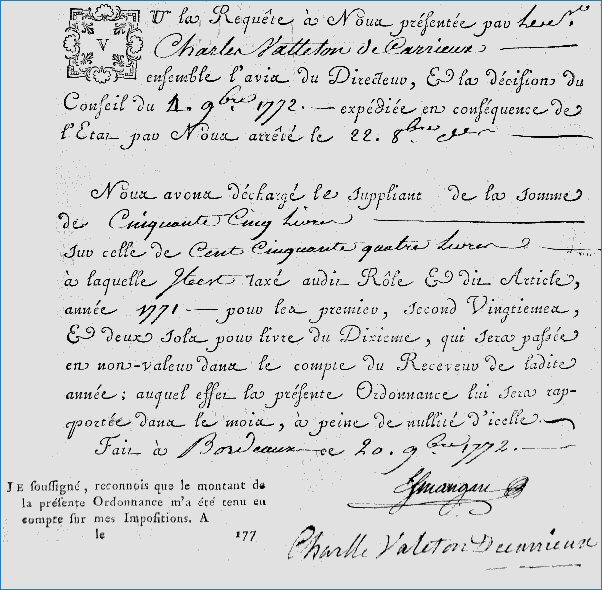 VU la Requête à Nous présentée par Le Sr.
Charles Valleton de Carrieux
ensemble l'avis du Directeur, & la décision du
Conseil du 4. 9bre 1772. expédiée en conséquence de
l'Etat par Nous arrêté le 22. 8bre der
Nous avons déchargé le suppliant de la somme
de Cinquante Cinq Livres
sur celle de Cent Cinquante quatre Livres
à laquelle Il est taxé audit Rôle & dit Article,
année 1771 pour les premier, second Vingtiemes,
& deux sols pour livre du Dixieme, qui sera passée
en non-valeur dans le compte du Receveur de ladite
année; auquel effet la présente Ordonnance lui sera rap-
portée dans le mois, à peine de nullité d'icelle.
Fait à Bordeaux ce 20. 9bre 1772.
JE soussigné, reconnois que le montant de
la présente Ordonnance m'a été tenu en
compte sur mes Impositions. A
le 177
Charlle Valeton Decarrieux